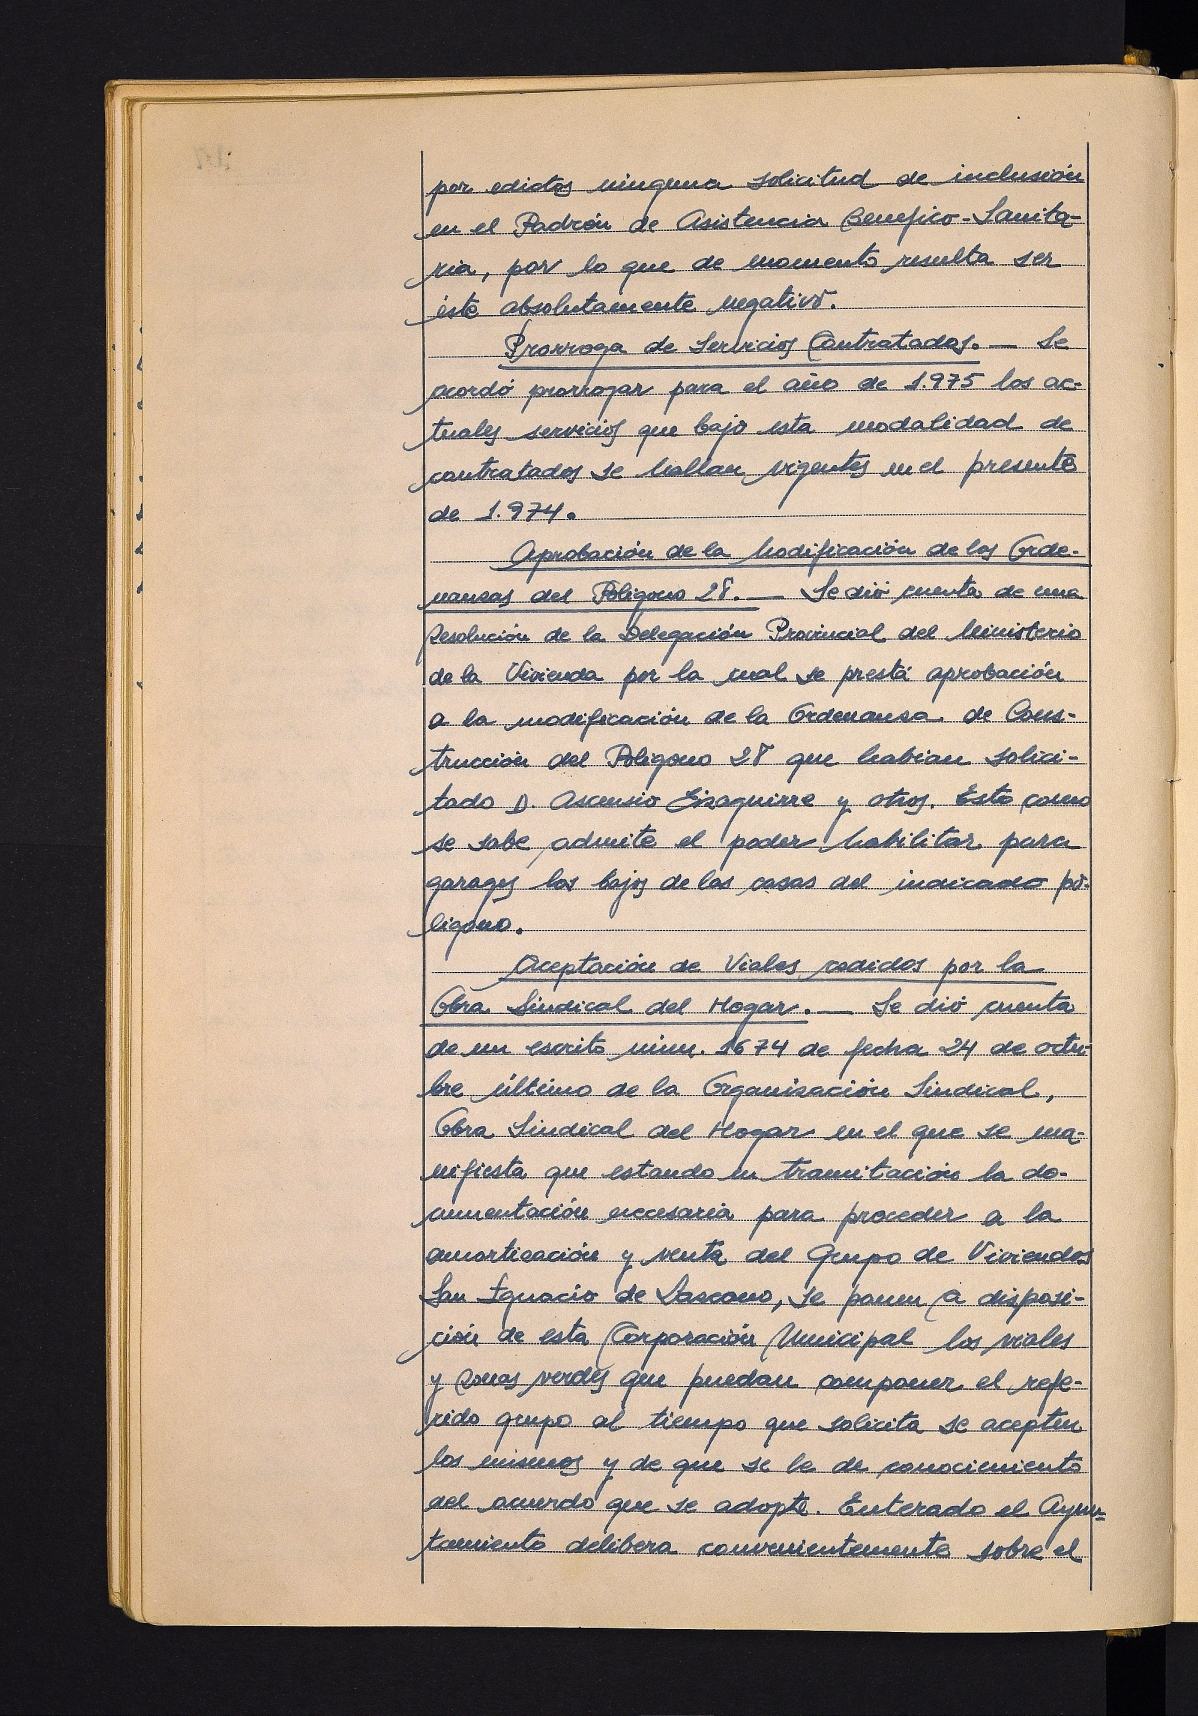 por edictos ninguna solicitud de inclusión
en el Padrón de Asistencia Benefico-Sanita-
ria, por lo que de momento resulta ser
éste absolutamente negativo.
Prorroga de Servicios Contratados. — Se
acordó prorrogar para el año de 1.975 los ac-
tuales servicios que bajo esta modalidad de
contratados se hallan vigentes en el presente
de 1.974.
Aprobación de la Modificación de las Orde-
nanzas del Poligono 28. — Se dió cuenta de una
Resolución de la Delegación Provincial del Ministerio
de la Vivienda por la cual se presta aprobación
a la modificación de la Ordenanza de Cons-
trucción del Poligono 28 que habian solici-
tado D. Ascensio Eizaguirre y otros. Esto como
se sabe admite el poder habilitar para
garages los bajos de las casas del indicado po-
ligono.
Aceptación de Viales cedidos por la
Obra Sindical del Hogar. — Se dió cuenta
de un escrito núm. 1674 de fecha 24 de octu-
bre último de la Organización Sindical,
Obra Sindical del Hogar en el que se ma-
nifiesta que estando en tramitación la do-
cumentación necesaria para proceder a la
amortización y venta del Grupo de Viviendas
San Ignacio de Lazcano, se ponen a disposi-
ción de esta Corporación Municipal los viales
y zonas verdes que puedan componer el refe-
rido grupo al tiempo que solicita se acepten
los mismos y de que se le de conocimiento
del acuerdo que se adopte. Enterado el Ayun-
tamiento delibera convenientemente sobre el